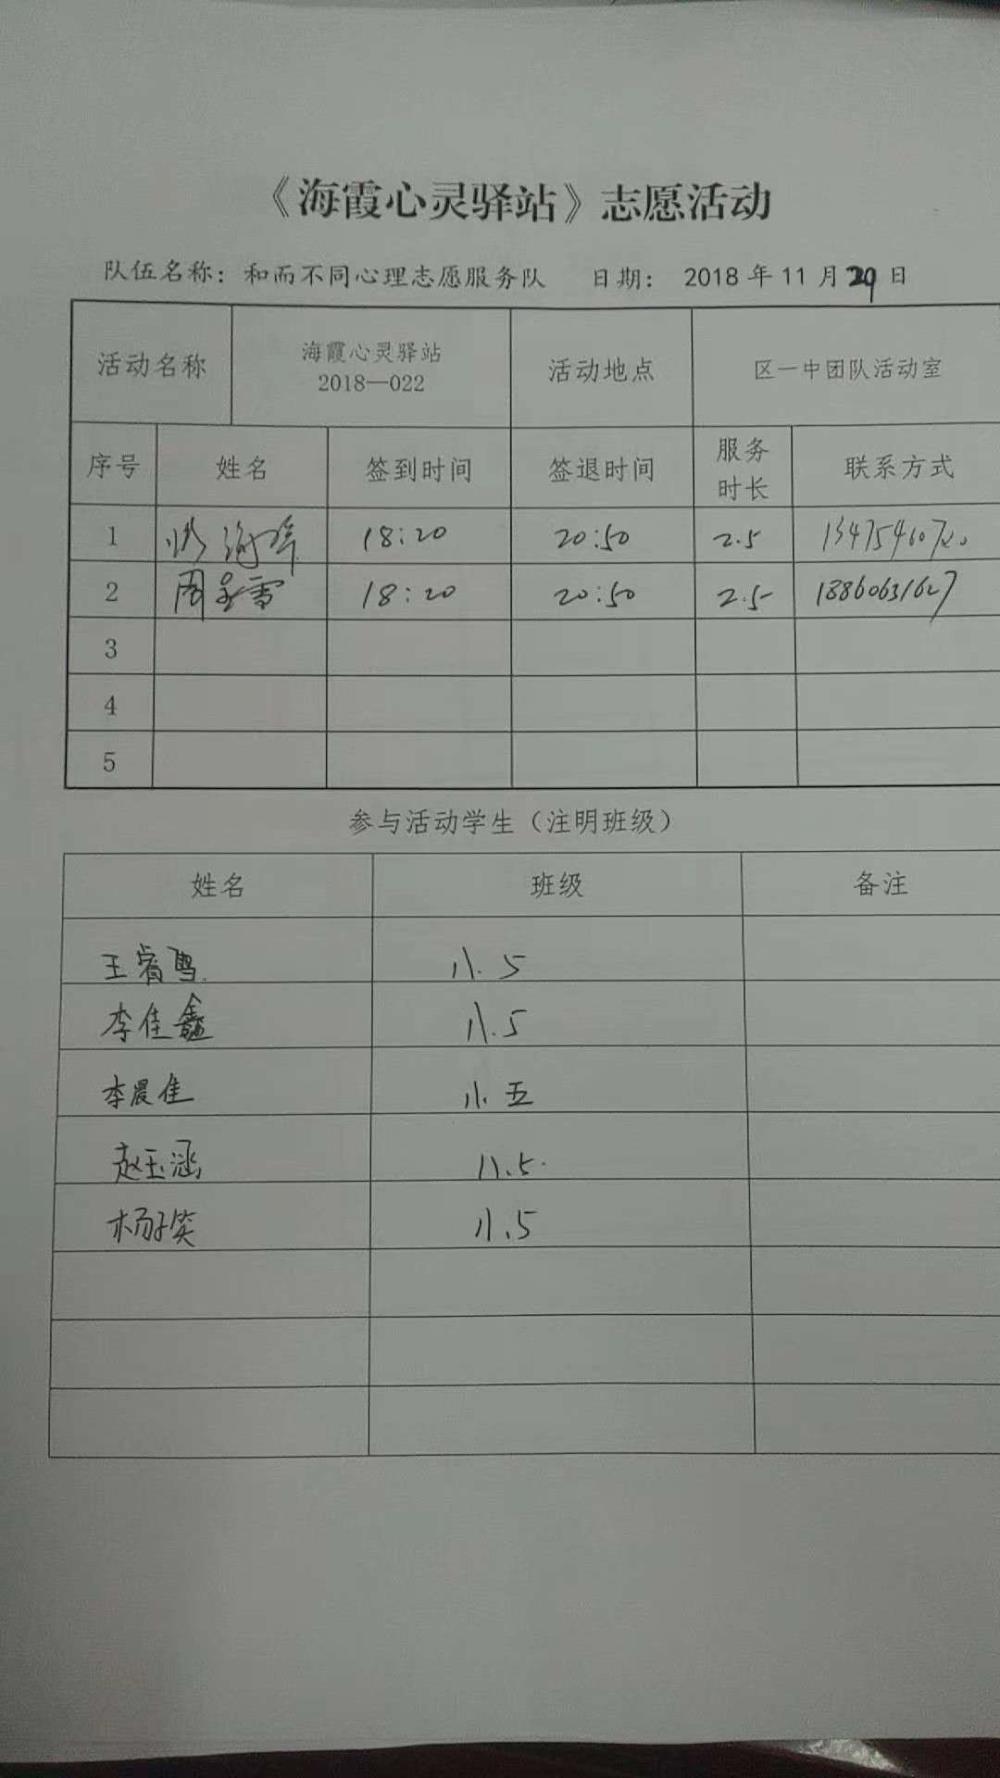 《海霞心灵驿站》志愿活动
队伍名称：和而不同心理志愿服务队 日期： 2018 年 11 月 29 日
活动名称 海霞心灵驿站 2018—022 活动地点 区一中团队活动室
序号 姓名 签到时间 签退时间 服务时长 联系方式
1 18:20 20:50 2.5
2 周 雪 18:20 20:50 2.5 18860631627
3
4
5
参与活动学生（注明班级）
姓名 班级 备注
王睿 八.5
李佳鑫 八.5
李晨佳 八.五
赵玉涵 八.5.
杨子笑 八.5